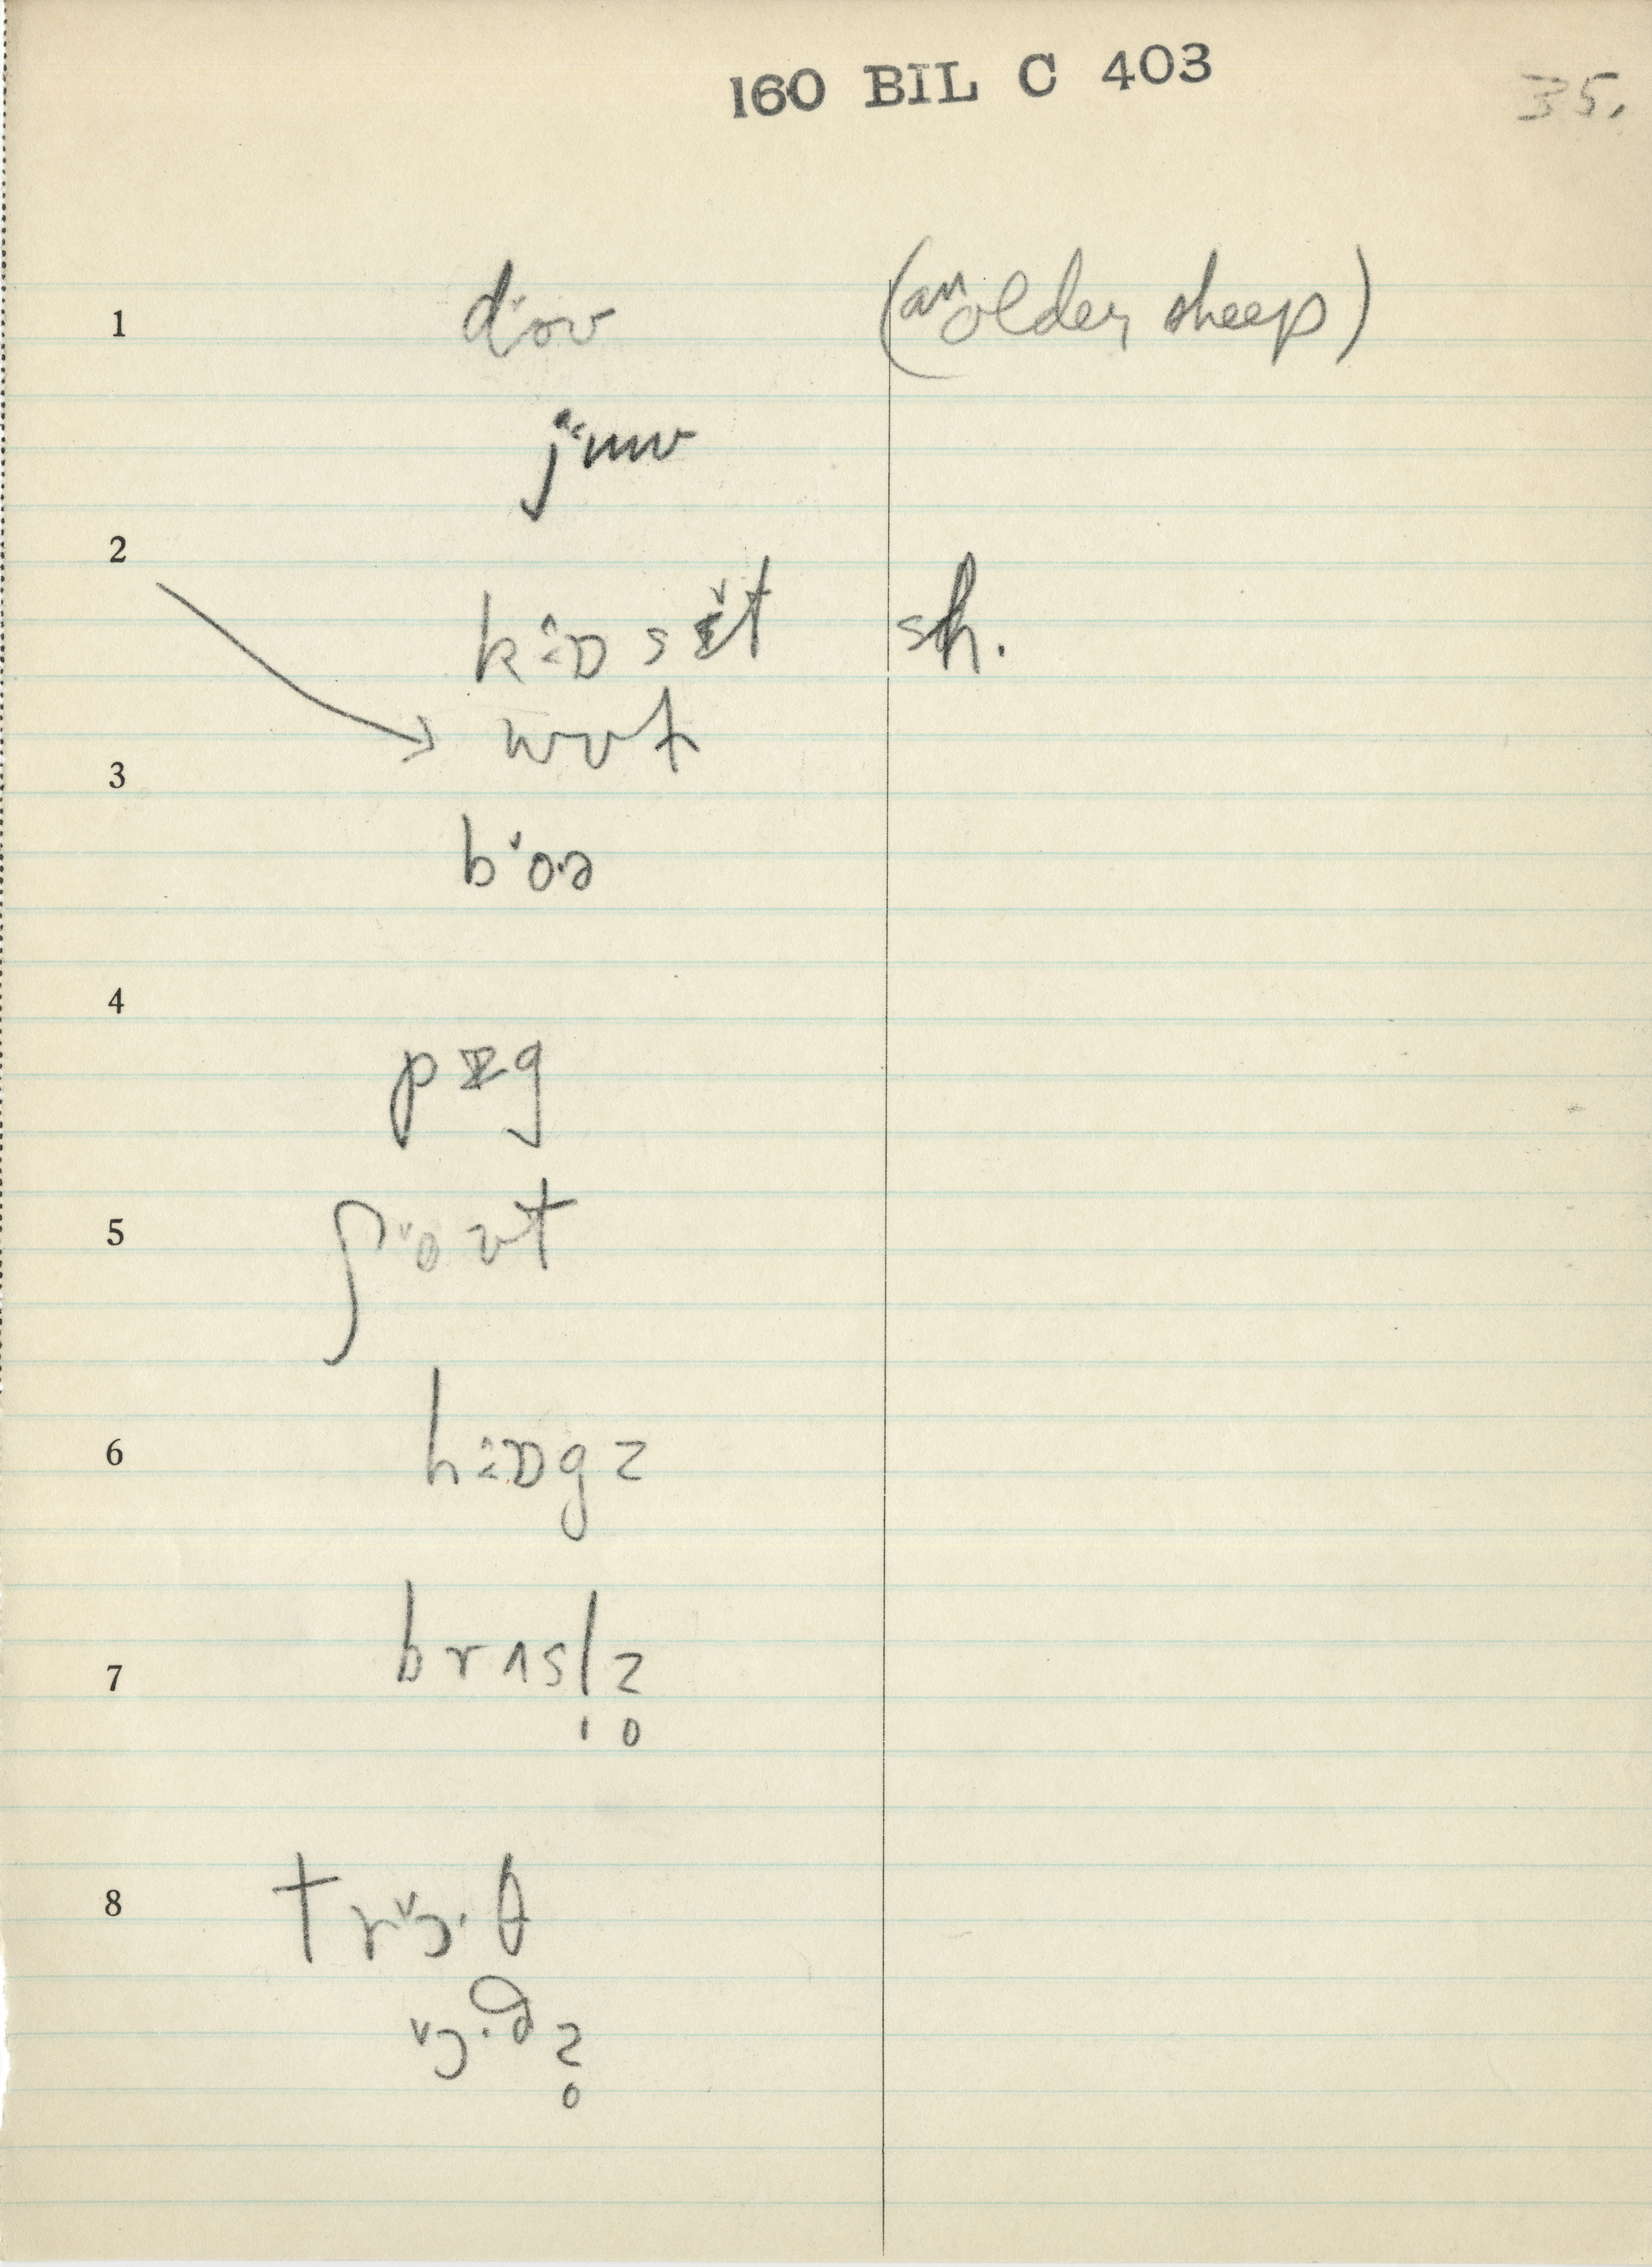 160 BIL C 403
35.
1 d˅oʊ (an older sheep)
j˂uʊ
2
k^ɒ sɪ˅t sh.
→ wʊt
3
b˅o·ə
4
pɪg
5 ʃ˅oʊt
6 h^ɒgz
7 brʌsl̩z̥
8 tr˅ɔ·θ
˅ɔ·ðz̥